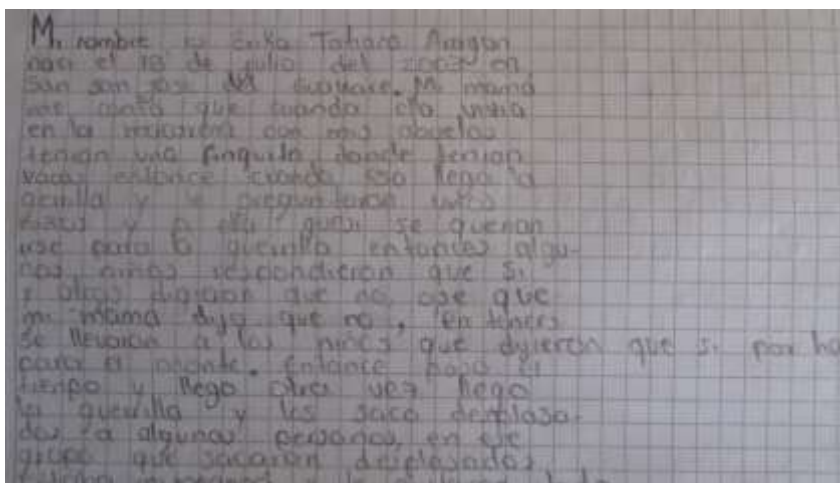 Mi nombre es Erika Tahara Aragon
naci el 18 de julio del 2003 en
San san jose del Guaviare. Mi mamá
me conto que cuando ella vivia
en la con mis abuelos
tenian una finquita, donde tenian
vacas entonce cuando eso llego la
gerilla y le preguntaron
y a ella quien se querian
irse para la guerrilla entonces algu-
nos niños respondieron que si
y otros digieron que no, ose que
mi mama dijo que no, entonces
se llevaron a los niños que dijieron que si por ha
para el monte. Entonce paso el
tiempo y llego otra vez llego
la guerrilla y les saco desplasa-
dos a algunas personas, en ese
grupo que sacaron desplasados,